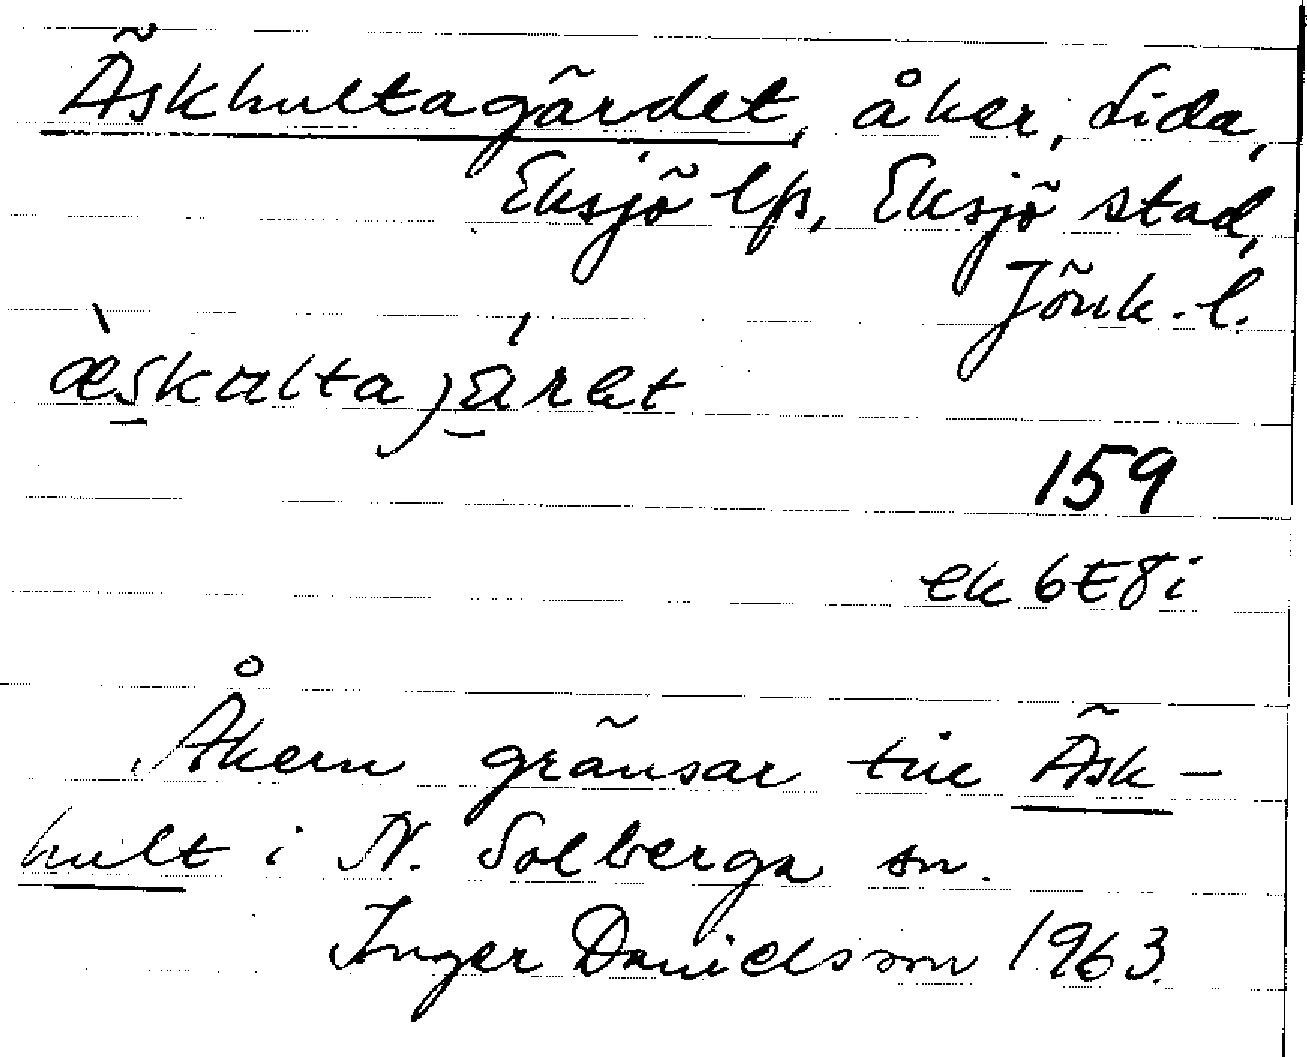 Äskhultagärdet, åker, Lida,
Eksjö lfs, Eksjö stad,
Jönk. l.
æ̀skulta jä́ret
159
ek 6E8i
Åkern gränsar till Äsk-
hult i N. Solberga sn.
Inger Danielsson 1963.